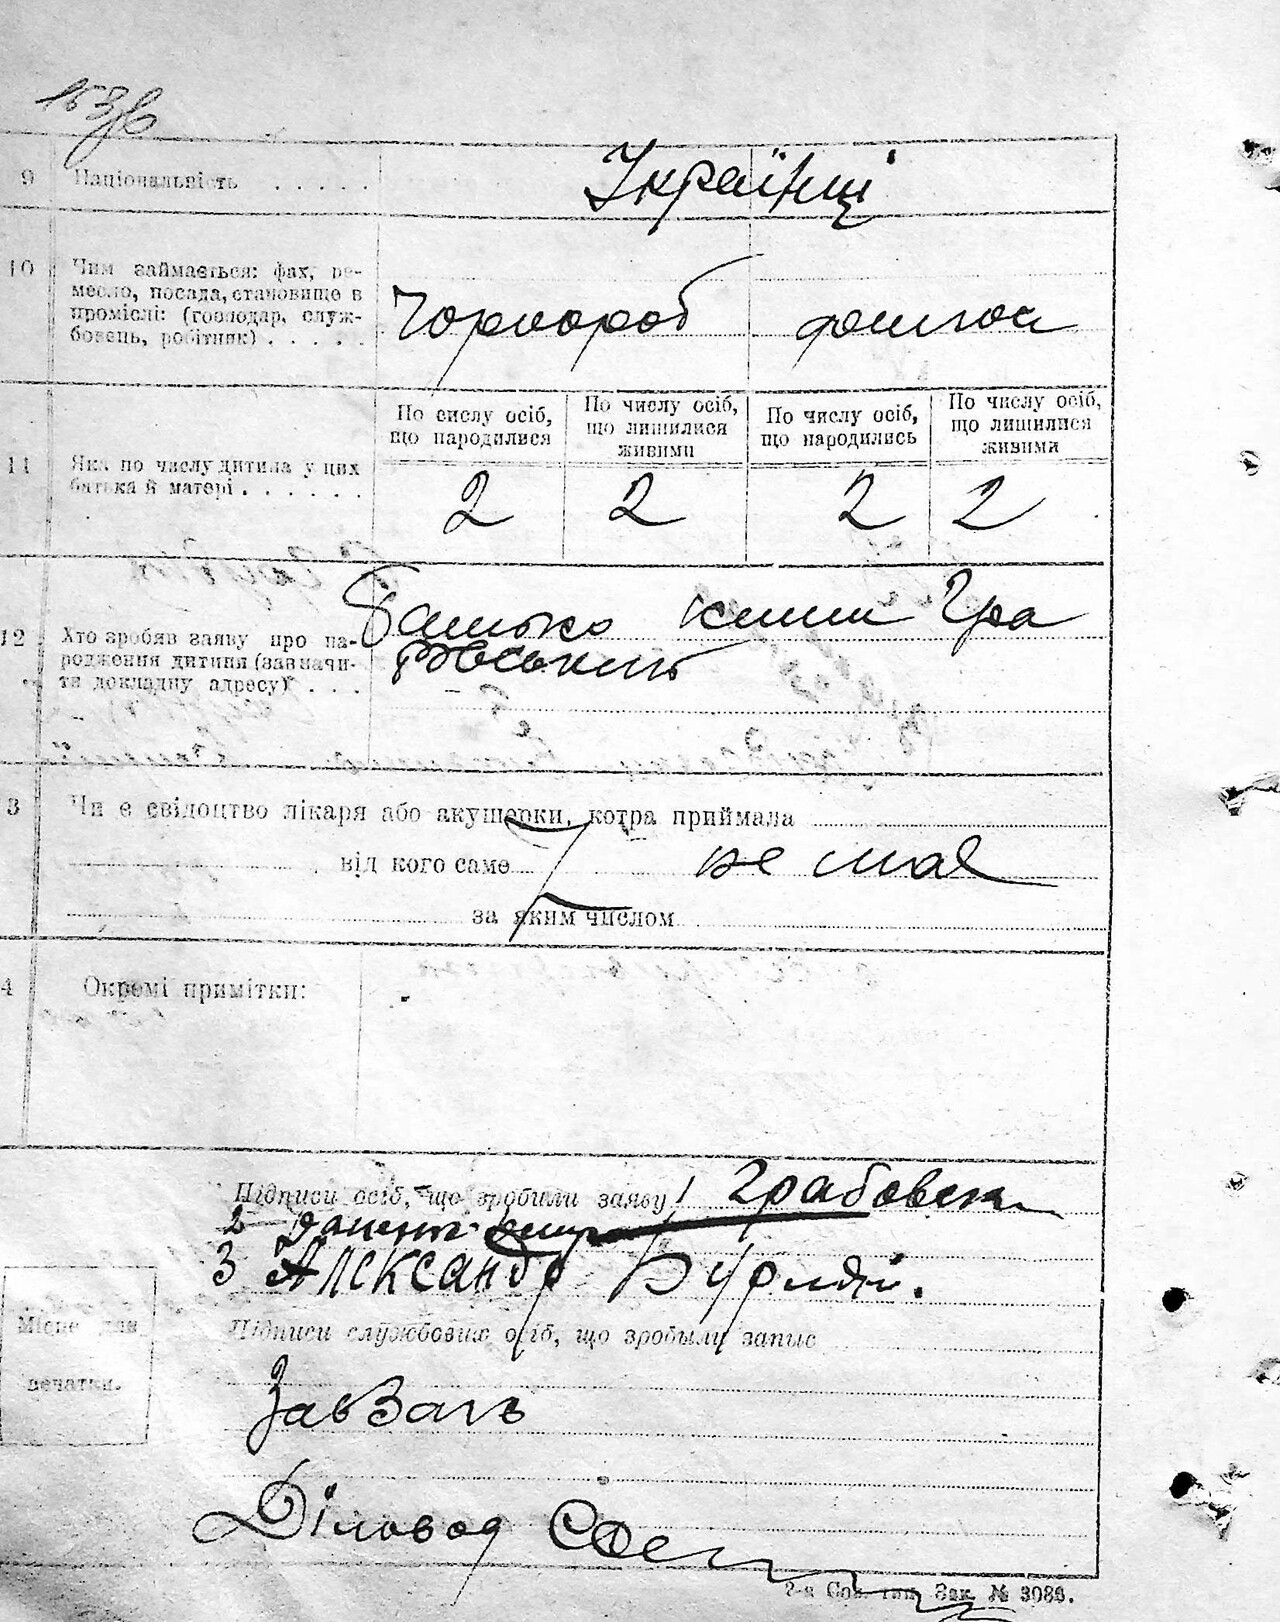 153
9 Національність . . . . . Українці
10 Чим займається: фах, ре-
месло, посада, становище в
промислі: (господар, служ-
бовець, робітник) . . . . . Чорнороб
По числу осіб, що народилися
По числу осіб, що лишилися живими
По числу осіб, що народились
По числу осіб, що лишилися живими
11 Яка по числу дитина у цих
батька й матері . . . . . . 2 2 2 2
12 Хто зробив заяву про на-
родження дитини (зазначи-
ти докладну адресу) . . . Батько Гра
бовський
3 Чи є свідоцтво лікаря або акушерки, котра приймала
від кого саме не має
за яким числом
4 Окремі примітки:
Підписи осіб, що зробили заяву 1 Грабовск
2
3 Александр Бурляй.
Підписи службових осіб, що зробыли запис
Місце для
печатки.
ЗавЗагс
Діловод
2-я Сов. тип. Зак. № 3083.